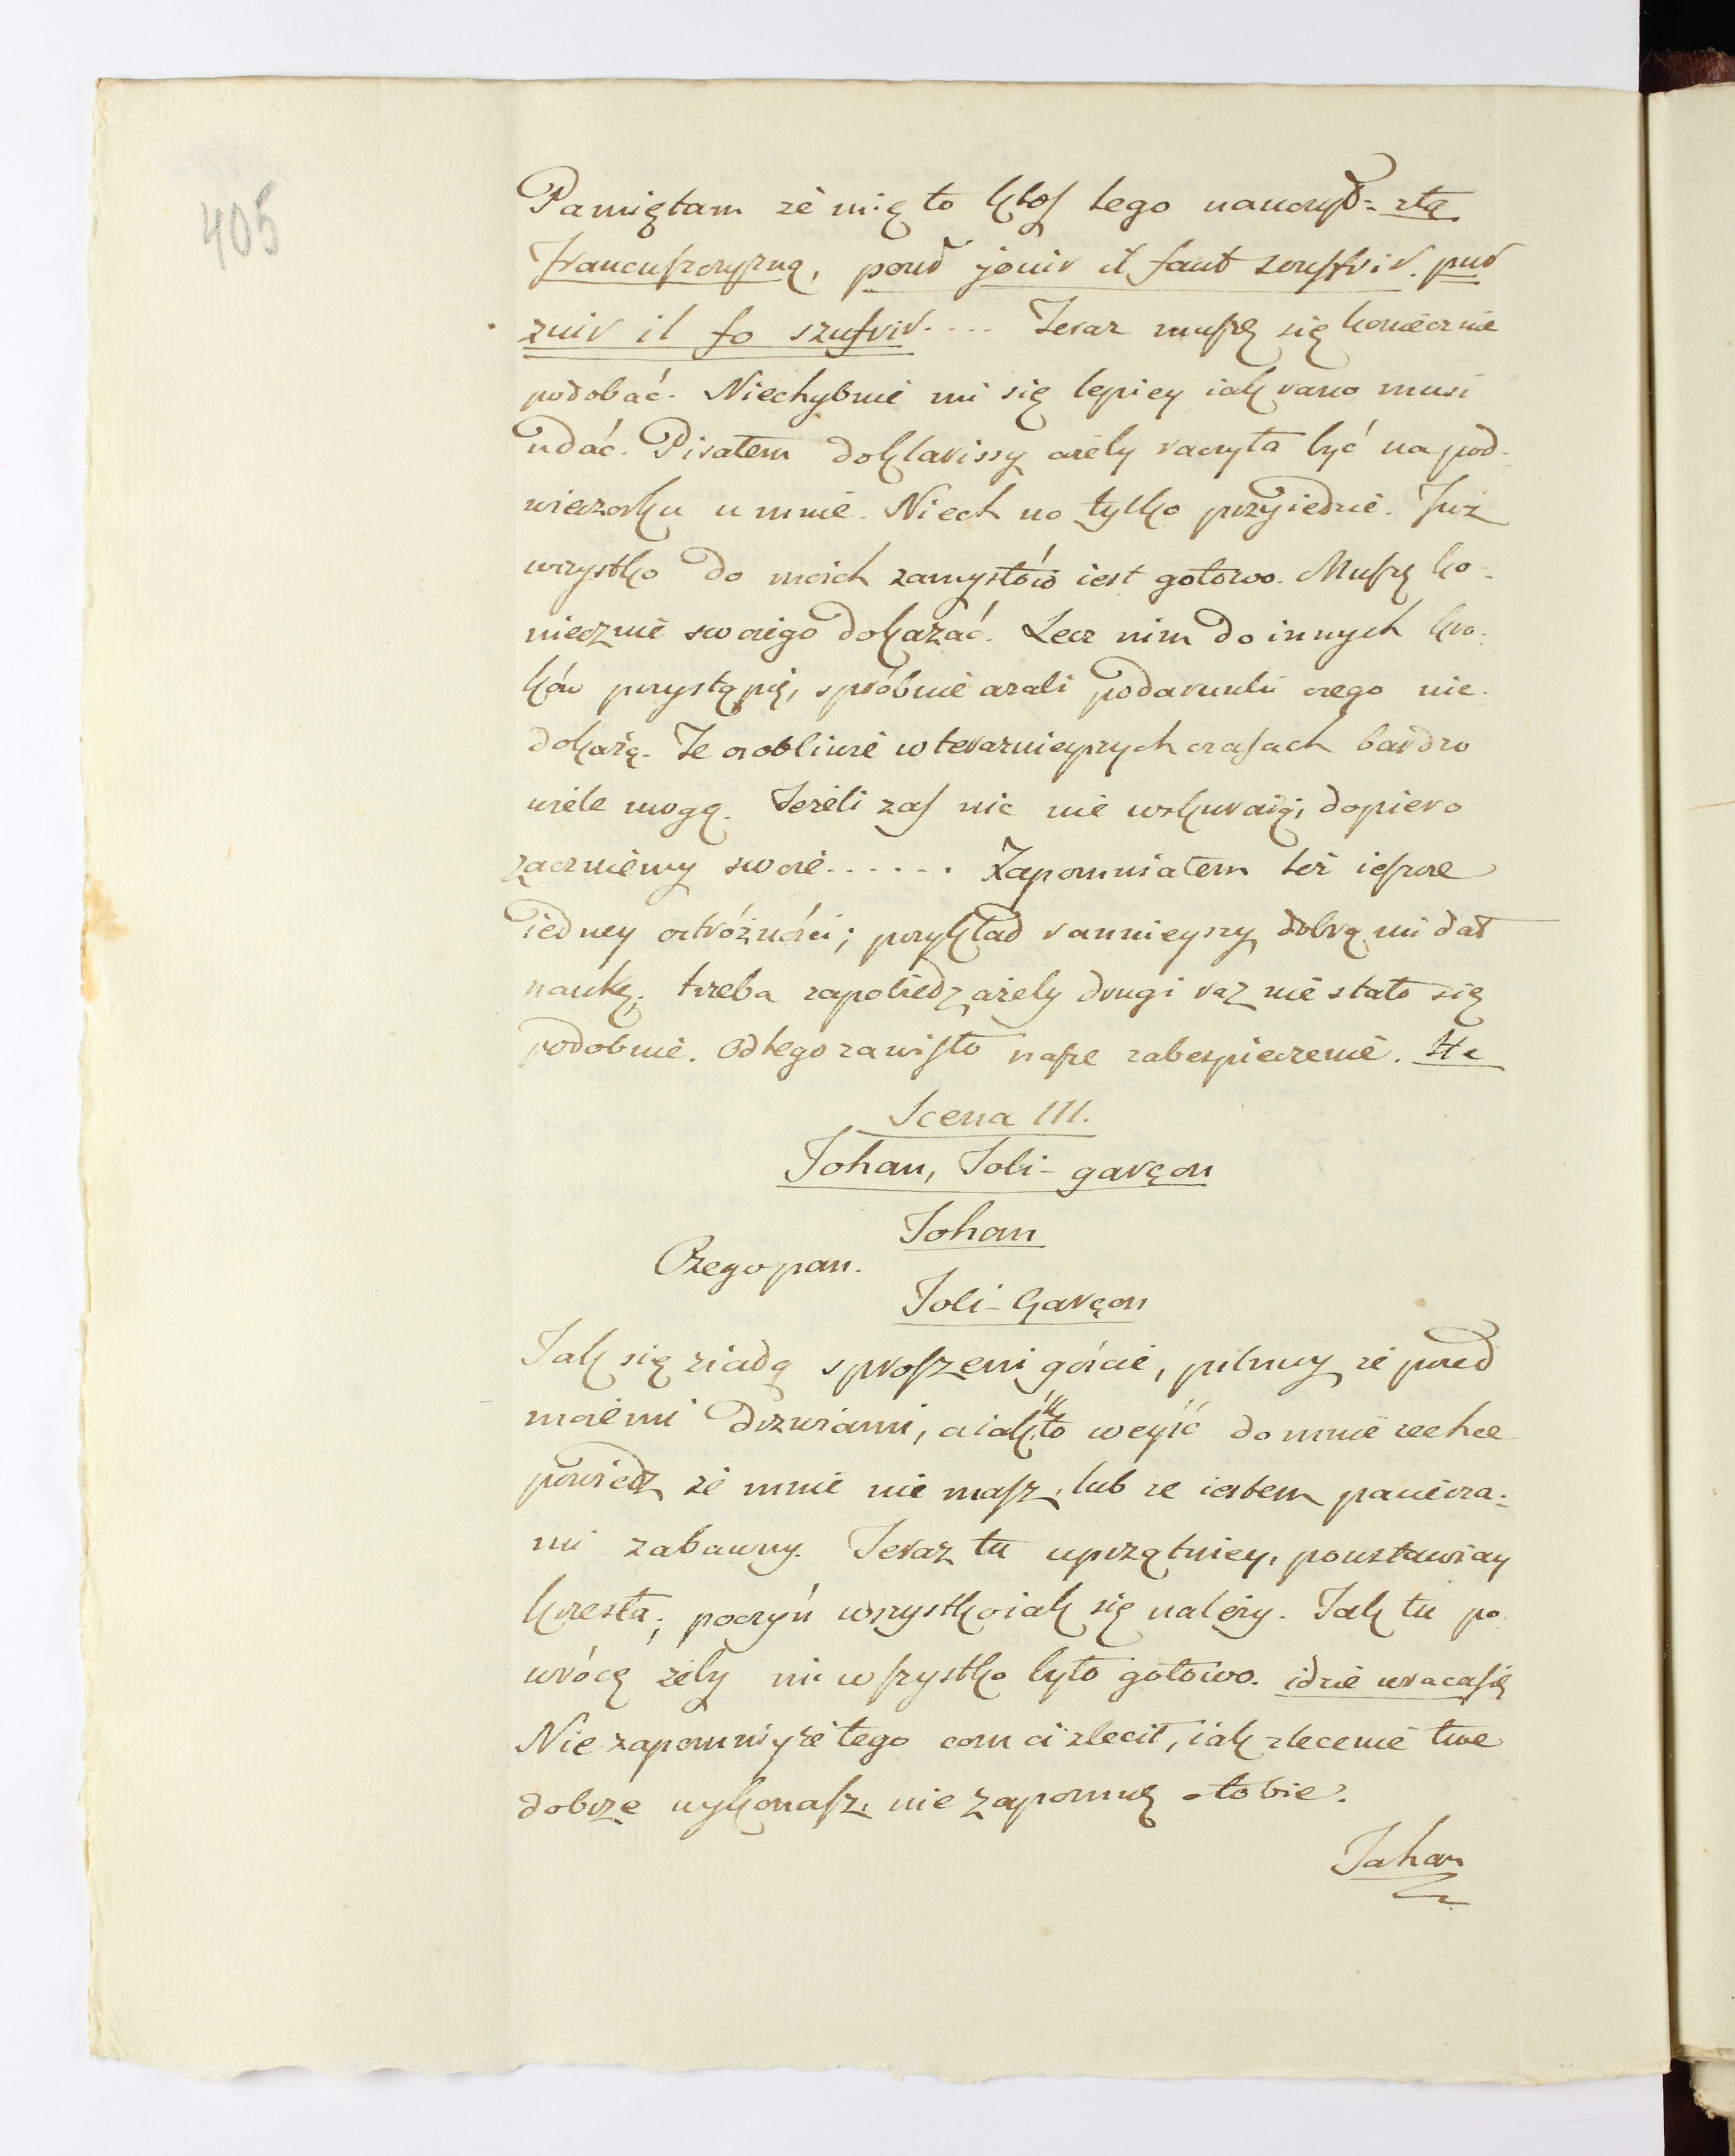 405
Pamiętam że mię to ktoſ tego nauczył= złą
francuſzczyzną, pour jouir il faut souffrir. pur
zuir il fo szufrir.... Teraz muſzę się koniecznie
podobać. Niechybnie mi się lepiey iak rano musi
udać. Pisałem doklarissy ażeby raczyła być na pod-
wieczorku u mnie. Niech no tylko przyiedzie. Już
wszystko do moich zamysłów iest gotowo. Muſzę ko-
niecznie swoiego dokazać. Lecz nim do innych kro-
ków przystąpię, spróbuię azali podarunki czego nie-
dokażą. Te osobliwie w teraznieyszych czaſach bardzo
wiele mogą. Jeżeli zaſ nic nie wskuraią, dopiero
zaczniemy swoie...... Zapomniałem też ieſzcze
iedney ostróżności; przykład rannieyszy dobrą mi dał
naukę, trzeba zapobiedz ażeby drugi raz nie stało się
podobnie. Odtego zawiſło naſze zabespieczenie.
Scena III.
Johan, Joli-garçon
Johan
Czego pan.
Joli-Garçon
Jak się ziadą sproſzeni góście, pilnuy że przed
moiemi drzwiami, a iak kto weyść do mnie zechce
powiedz że mnie nie maſz, lub że iestem papiera-
mi zabawny. Teraz tu uprzątniey, poustawiay
krzesła; poczyń wszystko iak się należy. Jak tu po
wrócę żeby mi wſzystko było gotowo. idzie wraca się
Nie zapomniyże tego com ci zlecił, iak zlecenie twe
dobrze wykonaſz, nie zapomnę o tobie.
Johan